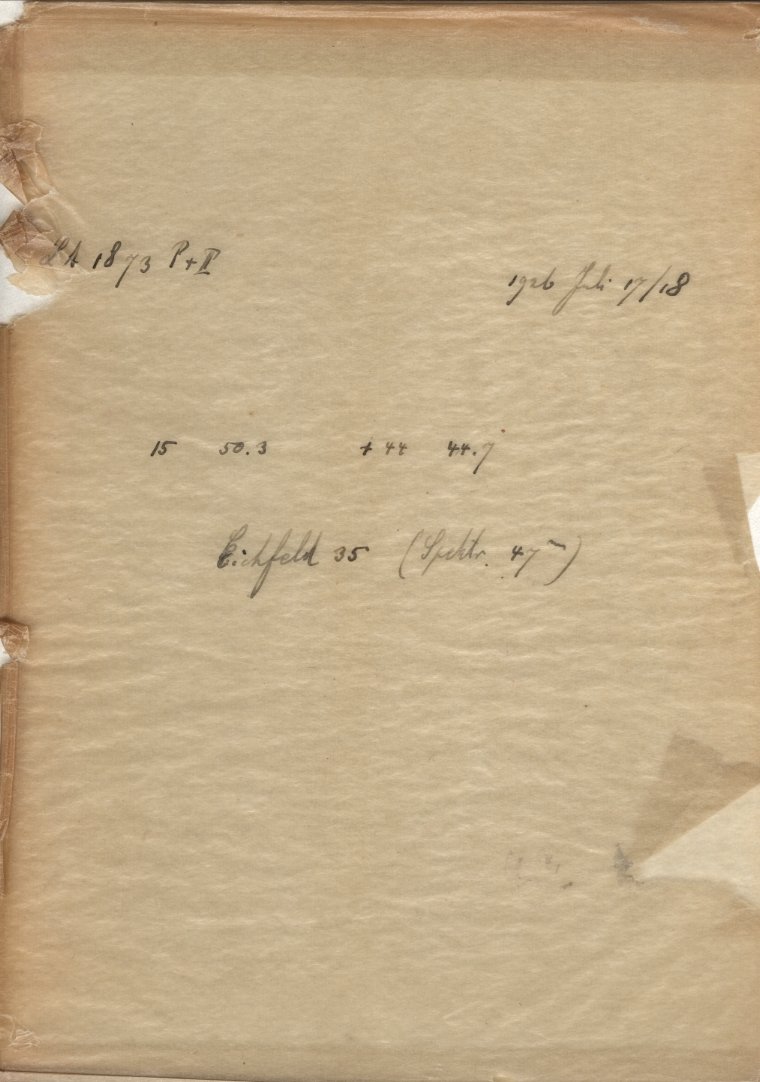 LA 1873 P+II
1926 Juli 17/18
15 50.3 +44 44.7
Eichfeld 35 (Spektr. 47m)